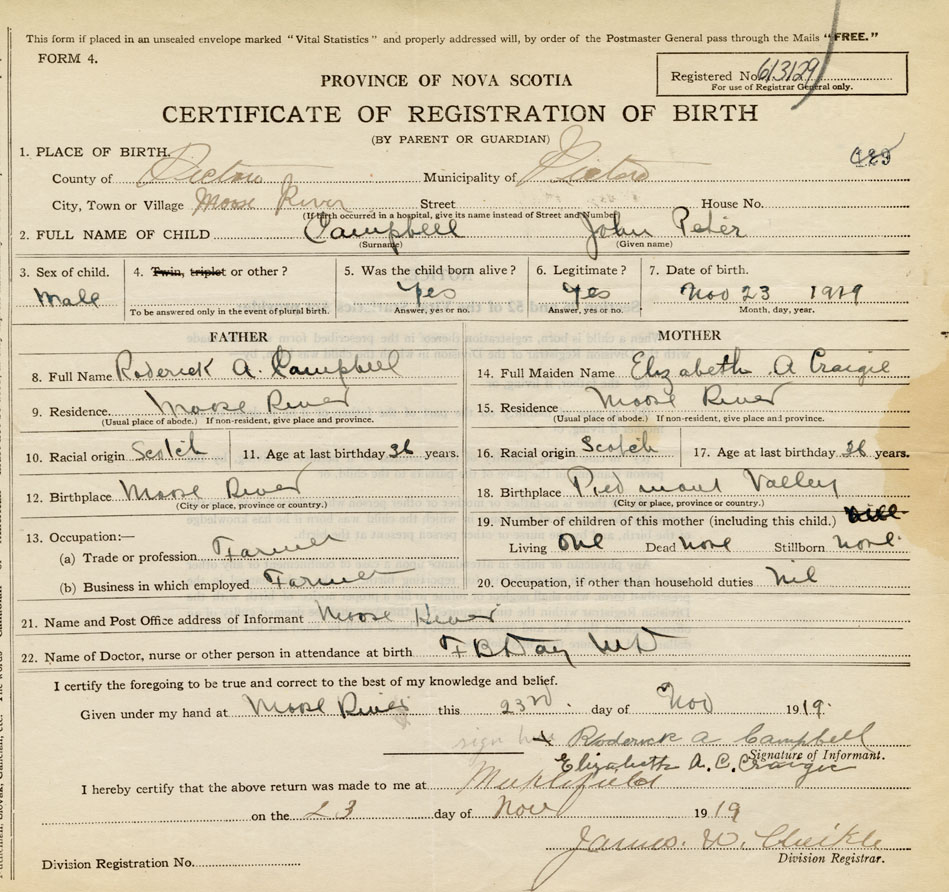 This form if placed in an unsealed envelope marked "Vital Statistics" and properly addressed will, by order of the Postmaster General pass through the Mails "FREE."
FORM 4.
Registered No. 613129
For use of Registrar General only.
PROVINCE OF NOVA SCOTIA
CERTIFICATE OF REGISTRATION OF BIRTH
(BY PARENT OR GUARDIAN)
1. PLACE OF BIRTH.
County of Pictou Municipality of Pictou
City, Town or Village Moose River Street House No.
(If birth occurred in a hospital, give its name instead of Street and Number)
2. FULL NAME OF CHILD Campbell John Peter
(Surname) (Given name)
3. Sex of child. 4. Twin, triplet or other? 5. Was the child born alive? 6. Legitimate? 7. Date of birth.
Male Yes Yes Nov 23 1919
To be answered only in the event of plural birth. Answer, yes or no. Answer, yes or no. Month, day, year.
FATHER MOTHER
8. Full Name Roderick A. Campbell 14. Full Maiden Name Elizabeth A Craigie
9. Residence. Moose River 15. Residence Moose River
(Usual place of abode.) If non-resident, give place and province. (Usual place of abode.) If non-resident, give place and province.
10. Racial origin Scotch 11. Age at last birthday 36 years. 16. Racial origin Scotch 17. Age at last birthday 36 years.
12. Birthplace Moose River 18. Birthplace Piedmont Valley
(City or place, province or country.) (City or place, province or country.)
13. Occupation:— 19. Number of children of this mother (including this child.)
(a) Trade or profession Farmer Living one Dead none Stillborn none.
(b) Business in which employed Farmer 20. Occupation, if other than household duties Nil
21. Name and Post Office address of Informant Moose River
22. Name of Doctor, nurse or other person in attendance at birth F B Day MD
I certify the foregoing to be true and correct to the best of my knowledge and belief.
Given under my hand at Moose River this 23rd. day of Nov 1919.
sign here x Roderick A Campbell
Signature of Informant.
Elizabeth A. C. Craigie
I hereby certify that the above return was made to me at
on the 23 day of Nov 1919
James. W.
Division Registration No. Division Registrar.